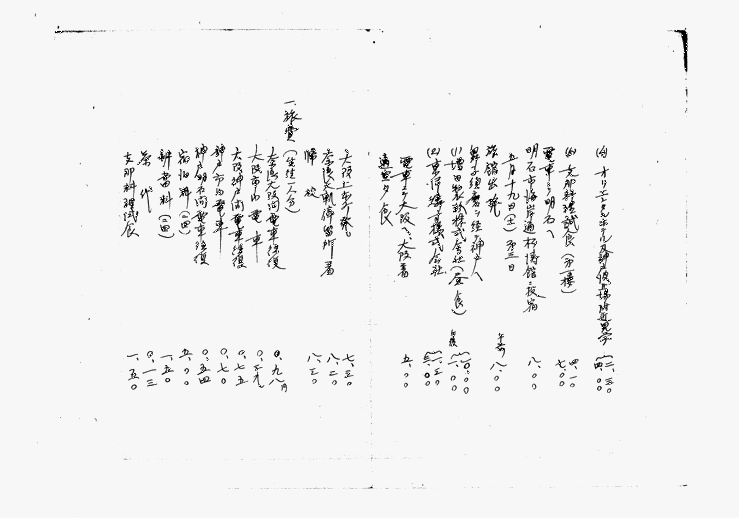 (5) オリエンタルホテル及神戸 場附近見学 {二、三〇 四、〇〇
(6) 支那料理試食(第一樓) 四、一〇
電車ニテ明石ヘ 七、〇〇
明石市海岸通 旅館ニ投宿 八、〇〇
五月十九日(土)第三日
旅館出発 午前 八、〇〇
舞子 ヲ経テ神戸ヘ
(1) 増田製粉株式会社(昼食) {一〇、〇〇 午後 一、〇〇
(2) 東洋 子株式会社 三、〇〇
電車ニテ大阪ヘ、大阪着 五、〇〇
適宜夕食
大阪上本町発 七、三〇
奈良大軌停留所着 八、二〇
帰校 八、三〇
一、旅費(生徒一人分)
奈良大阪間電車往復 〇、九八円
大阪市内電車
大阪神戸間電車往復 〇、七五
神戸市内電車 〇、七〇
神戸明石間電車往復 〇、五四
宿泊料(一回) 五、〇〇
辨当料(一回) 一、五〇
茶代 〇、一三
支那料理試食 一、五〇